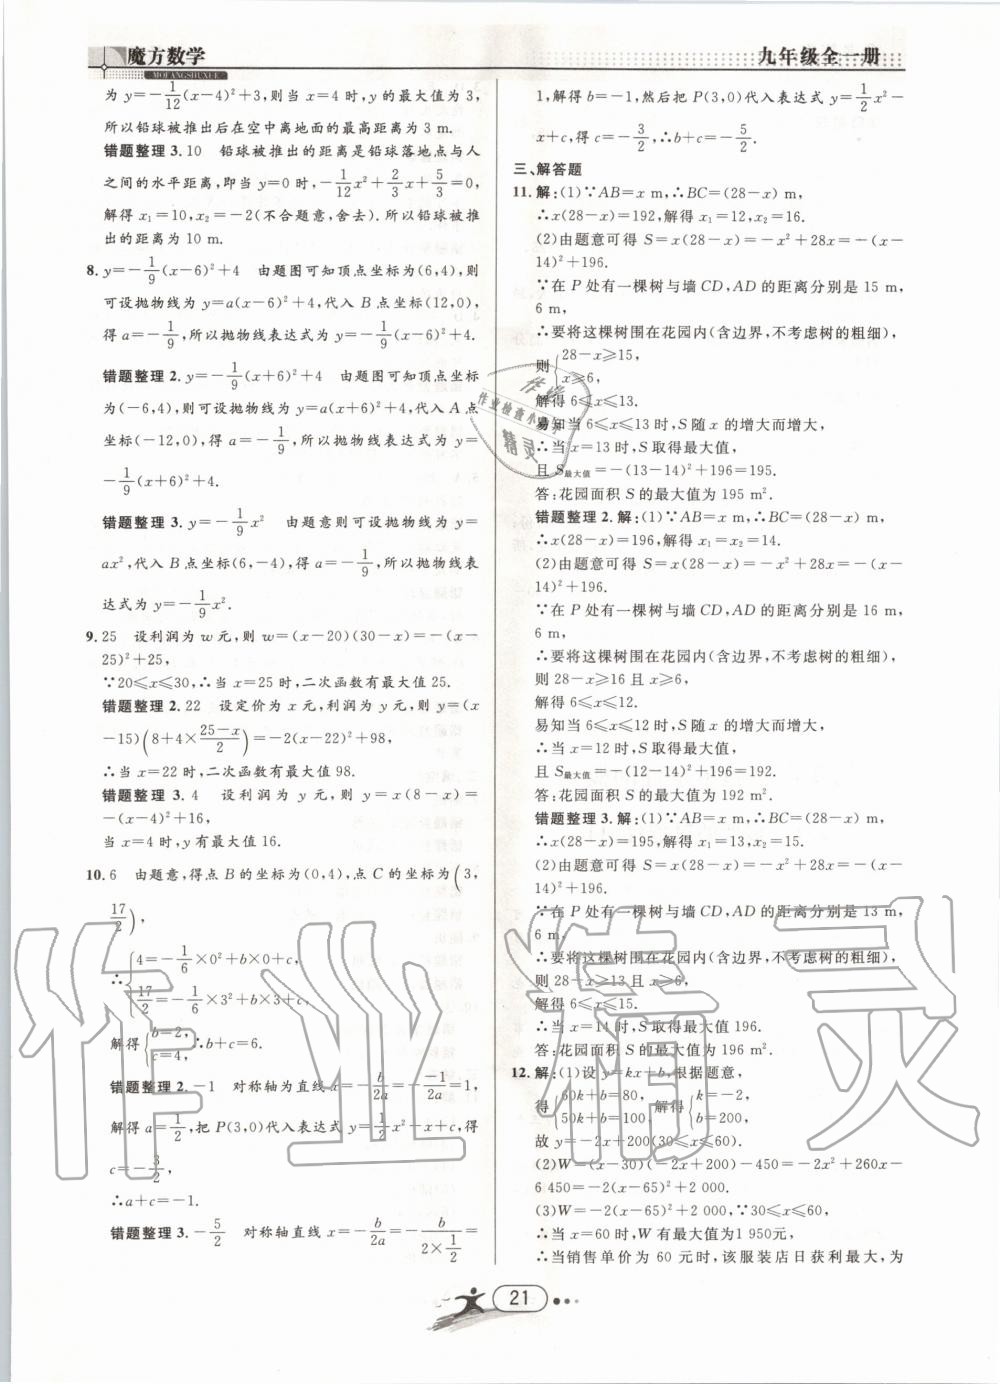 魔方数学
MOFANGSHUXUE
九年级全一册
为 y=-1/12(x-4)²+3,则当 x=4 时,y 的最大值为 3,
所以铅球被推出后在空中离地面的最高距离为 3 m.
错题整理 3. 10 铅球被推出的距离是铅球落地点与人
之间的水平距离,即当 y=0 时,-1/12x²+2/3x+5/3=0,
解得 x₁=10,x₂=-2(不合题意,舍去). 所以铅球被推
出的距离为 10 m.
8. y=-1/9(x-6)²+4 由题图可知顶点坐标为(6,4),则
可设抛物线为 y=a(x-6)²+4,代入 B 点坐标(12,0),
得 a=-1/9,所以抛物线表达式为 y=-1/9(x-6)²+4.
错题整理 2. y=-1/9(x+6)²+4 由题图可知顶点坐标
为(-6,4),则可设抛物线为 y=a(x+6)²+4,代入 A 点
坐标(-12,0),得 a=-1/9,所以抛物线表达式为 y=
-1/9(x+6)²+4.
错题整理 3. y=-1/9x² 由题意则可设抛物线为 y=
ax²,代入 B 点坐标(6,-4),得 a=-1/9,所以抛物线表
达式为 y=-1/9x².
9. 25 设利润为 w 元,则 w=(x-20)(30-x)=-(x-
25)²+25,
∵20≤x≤30,∴当 x=25 时,二次函数有最大值 25.
错题整理 2. 22 设定价为 x 元,利润为 y 元,则 y=(x
-15)(8+4×(25-x)/2)=-2(x-22)²+98,
∴当 x=22 时,二次函数有最大值 98.
错题整理 3. 4 设利润为 y 元,则 y=x(8-x)=
-(x-4)²+16,
当 x=4 时,y 有最大值 16.
10. 6 由题意,得点 B 的坐标为(0,4),点 C 的坐标为(3,
17/2),
∴{4=-1/6×0²+b×0+c,
17/2=-1/6×3²+b×3+c,
解得{b=2,
c=4,∴b+c=6.
错题整理 2. -1 对称轴为直线 x=-b/2a=--1/2a=1,
解得 a=1/2,把 P(3,0)代入表达式 y=1/2x²-x+c,得
c=-3/2,
∴a+c=-1.
错题整理 3. -5/2 对称轴直线 x=-b/2a=-b/(2×1/2)=
1,解得 b=-1,然后把 P(3,0)代入表达式 y=1/2x²-
x+c,得 c=-3/2,∴b+c=-5/2.
三、解答题
11. 解:(1)∵AB=x m,∴BC=(28-x) m,
∴x(28-x)=192,解得 x₁=12,x₂=16.
(2)由题意可得 S=x(28-x)=-x²+28x=-(x-
14)²+196.
∵在 P 处有一棵树与墙 CD,AD 的距离分别是 15 m,
6 m,
∴要将这棵树围在花园内(含边界,不考虑树的粗细),
则{28-x≥15,
x≥6,
解得 6≤x≤13.
易知当 6≤x≤13 时,S 随 x 的增大而增大,
∴当 x=13 时,S 取得最大值,
且 S最大值=-(13-14)²+196=195.
答:花园面积 S 的最大值为 195 m².
错题整理 2. 解:(1)∵AB=x m,∴BC=(28-x) m,
∴x(28-x)=196,解得 x₁=x₂=14.
(2)由题意可得 S=x(28-x)=-x²+28x=-(x-
14)²+196.
∵在 P 处有一棵树与墙 CD,AD 的距离分别是 16 m,
6 m,
∴要将这棵树围在花园内(含边界,不考虑树的粗细),
则 28-x≥16 且 x≥6,
解得 6≤x≤12.
易知当 6≤x≤12 时,S 随 x 的增大而增大,
∴当 x=12 时,S 取得最大值,
且 S最大值=-(12-14)²+196=192.
答:花园面积 S 的最大值为 192 m².
错题整理 3. 解:(1)∵AB=x m,∴BC=(28-x) m,
∴x(28-x)=195,解得 x₁=13,x₂=15.
(2)由题意可得 S=x(28-x)=-x²+28x=-(x-
14)²+196.
∵在 P 处有一棵树与墙 CD,AD 的距离分别是 13 m,
6 m,
∴要将这棵树围在花园内(含边界,不考虑树的粗细),
则 28-x≥13 且 x≥6,
解得 6≤x≤15.
∴当 x=14 时,S 取得最大值 196.
答:花园面积 S 的最大值为 196 m².
12. 解:(1)设 y=kx+b,根据题意,
得{60k+b=80,
50k+b=100,解得{k=-2,
b=200,
故 y=-2x+200(30≤x≤60).
(2)W=(x-30)(-2x+200)-450=-2x²+260x-
6 450=-2(x-65)²+2 000.
(3)W=-2(x-65)²+2 000,∵30≤x≤60,
∴当 x=60 时,W 有最大值为1 950元,
∴当销售单价为 60 元时,该服装店日获利最大,为
21
作业
作业检查小帮手
精灵
作业精灵